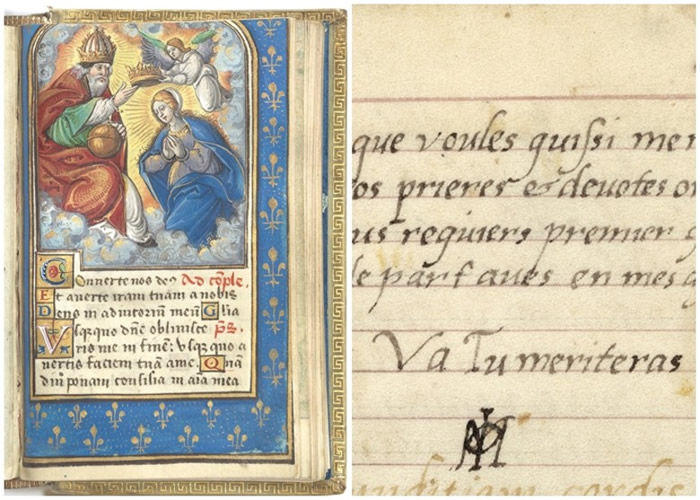 Conuerte nos de9 Ad cōple.
Et auerte iram tuam a nobis
Deus in adiutoriū meū Glia
Vsqzquo dñe obliuisce ps.
ris me in finē: vsqzquo a
uertis faciem tuā a me. Quā
diu ponam consilia in aīa mea
que voules quissi mer
os prieres & devotes o
us requiers premier
le part aues en mes
Va Tu meriteras